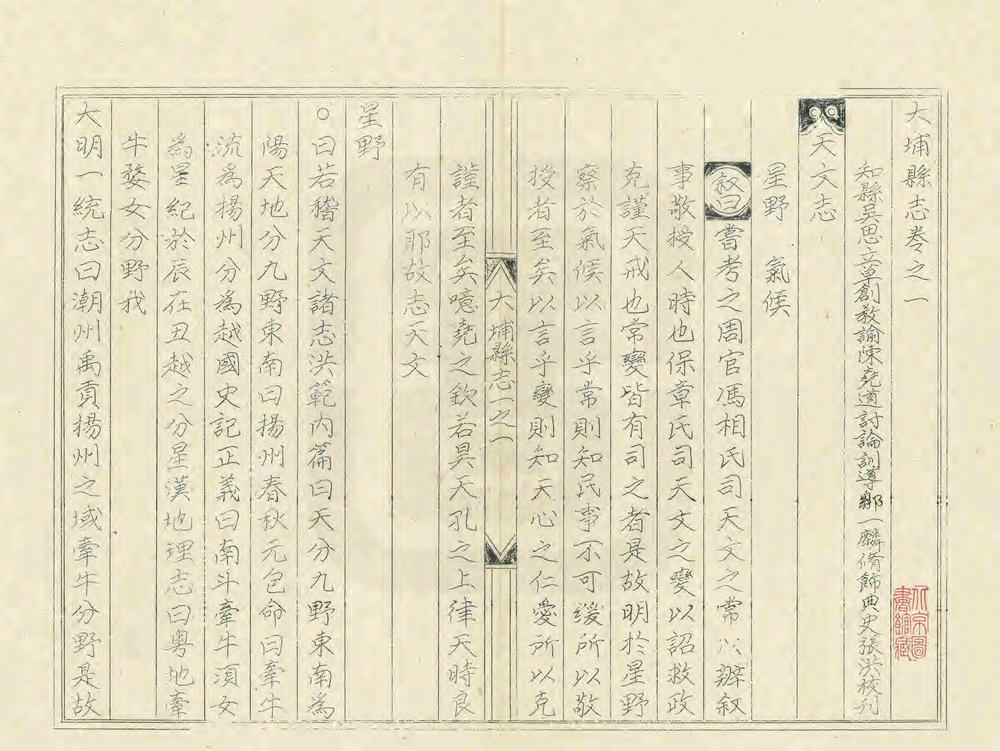 大埔縣志卷之一
知縣吳思立草創教諭陳堯道討論訓導鄒一麟脩飾典史張洪校刊
天文志
星野　氣候
叙曰嘗考之周官馮相氏司天文之常以辨叙
事敬授人時也保章氏司天文之變以詔救政
克謹天戒也常變皆有司之者是故明於星野
察於氣候以言乎常則知民事不可緩所以敬
授者至矣以言乎變則知天心之仁愛所以克
大埔縣志一之一
謹者至矣噫堯之欽若昊天孔之上律天時良
有以耶故志天文
星野
○曰若稽天文諸志洪範內篇曰天分九野東南為
陽天地分九野東南曰揚州春秋元包命曰牽牛
流為揚州分為越國史記正義曰南斗牽牛須女
為星紀於辰在丑越之分星漢地理志曰粵地牽
牛婺女分野我
大明一統志曰潮州禹貢揚州之域牽牛分野是故